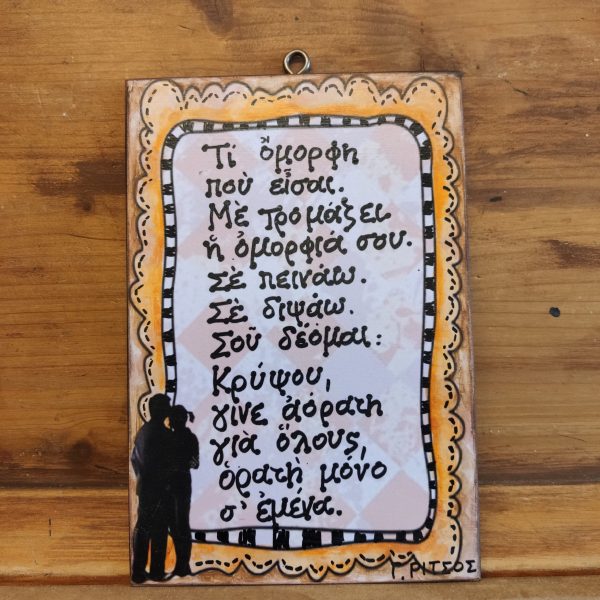 Τί ὄμορφη
ποὺ εἶσαι.
Μὲ τρομάζει
ἡ ὀμορφιά σου.
Σὲ πεινάω.
Σὲ διψάω.
Σοῦ δέομαι:
Κρύψου,
γίνε ἀόρατη
γιὰ ὅλους,
ὁρατὴ μόνο
σ' ἐμένα.
Γ. ΡΙΤΣΟΣ